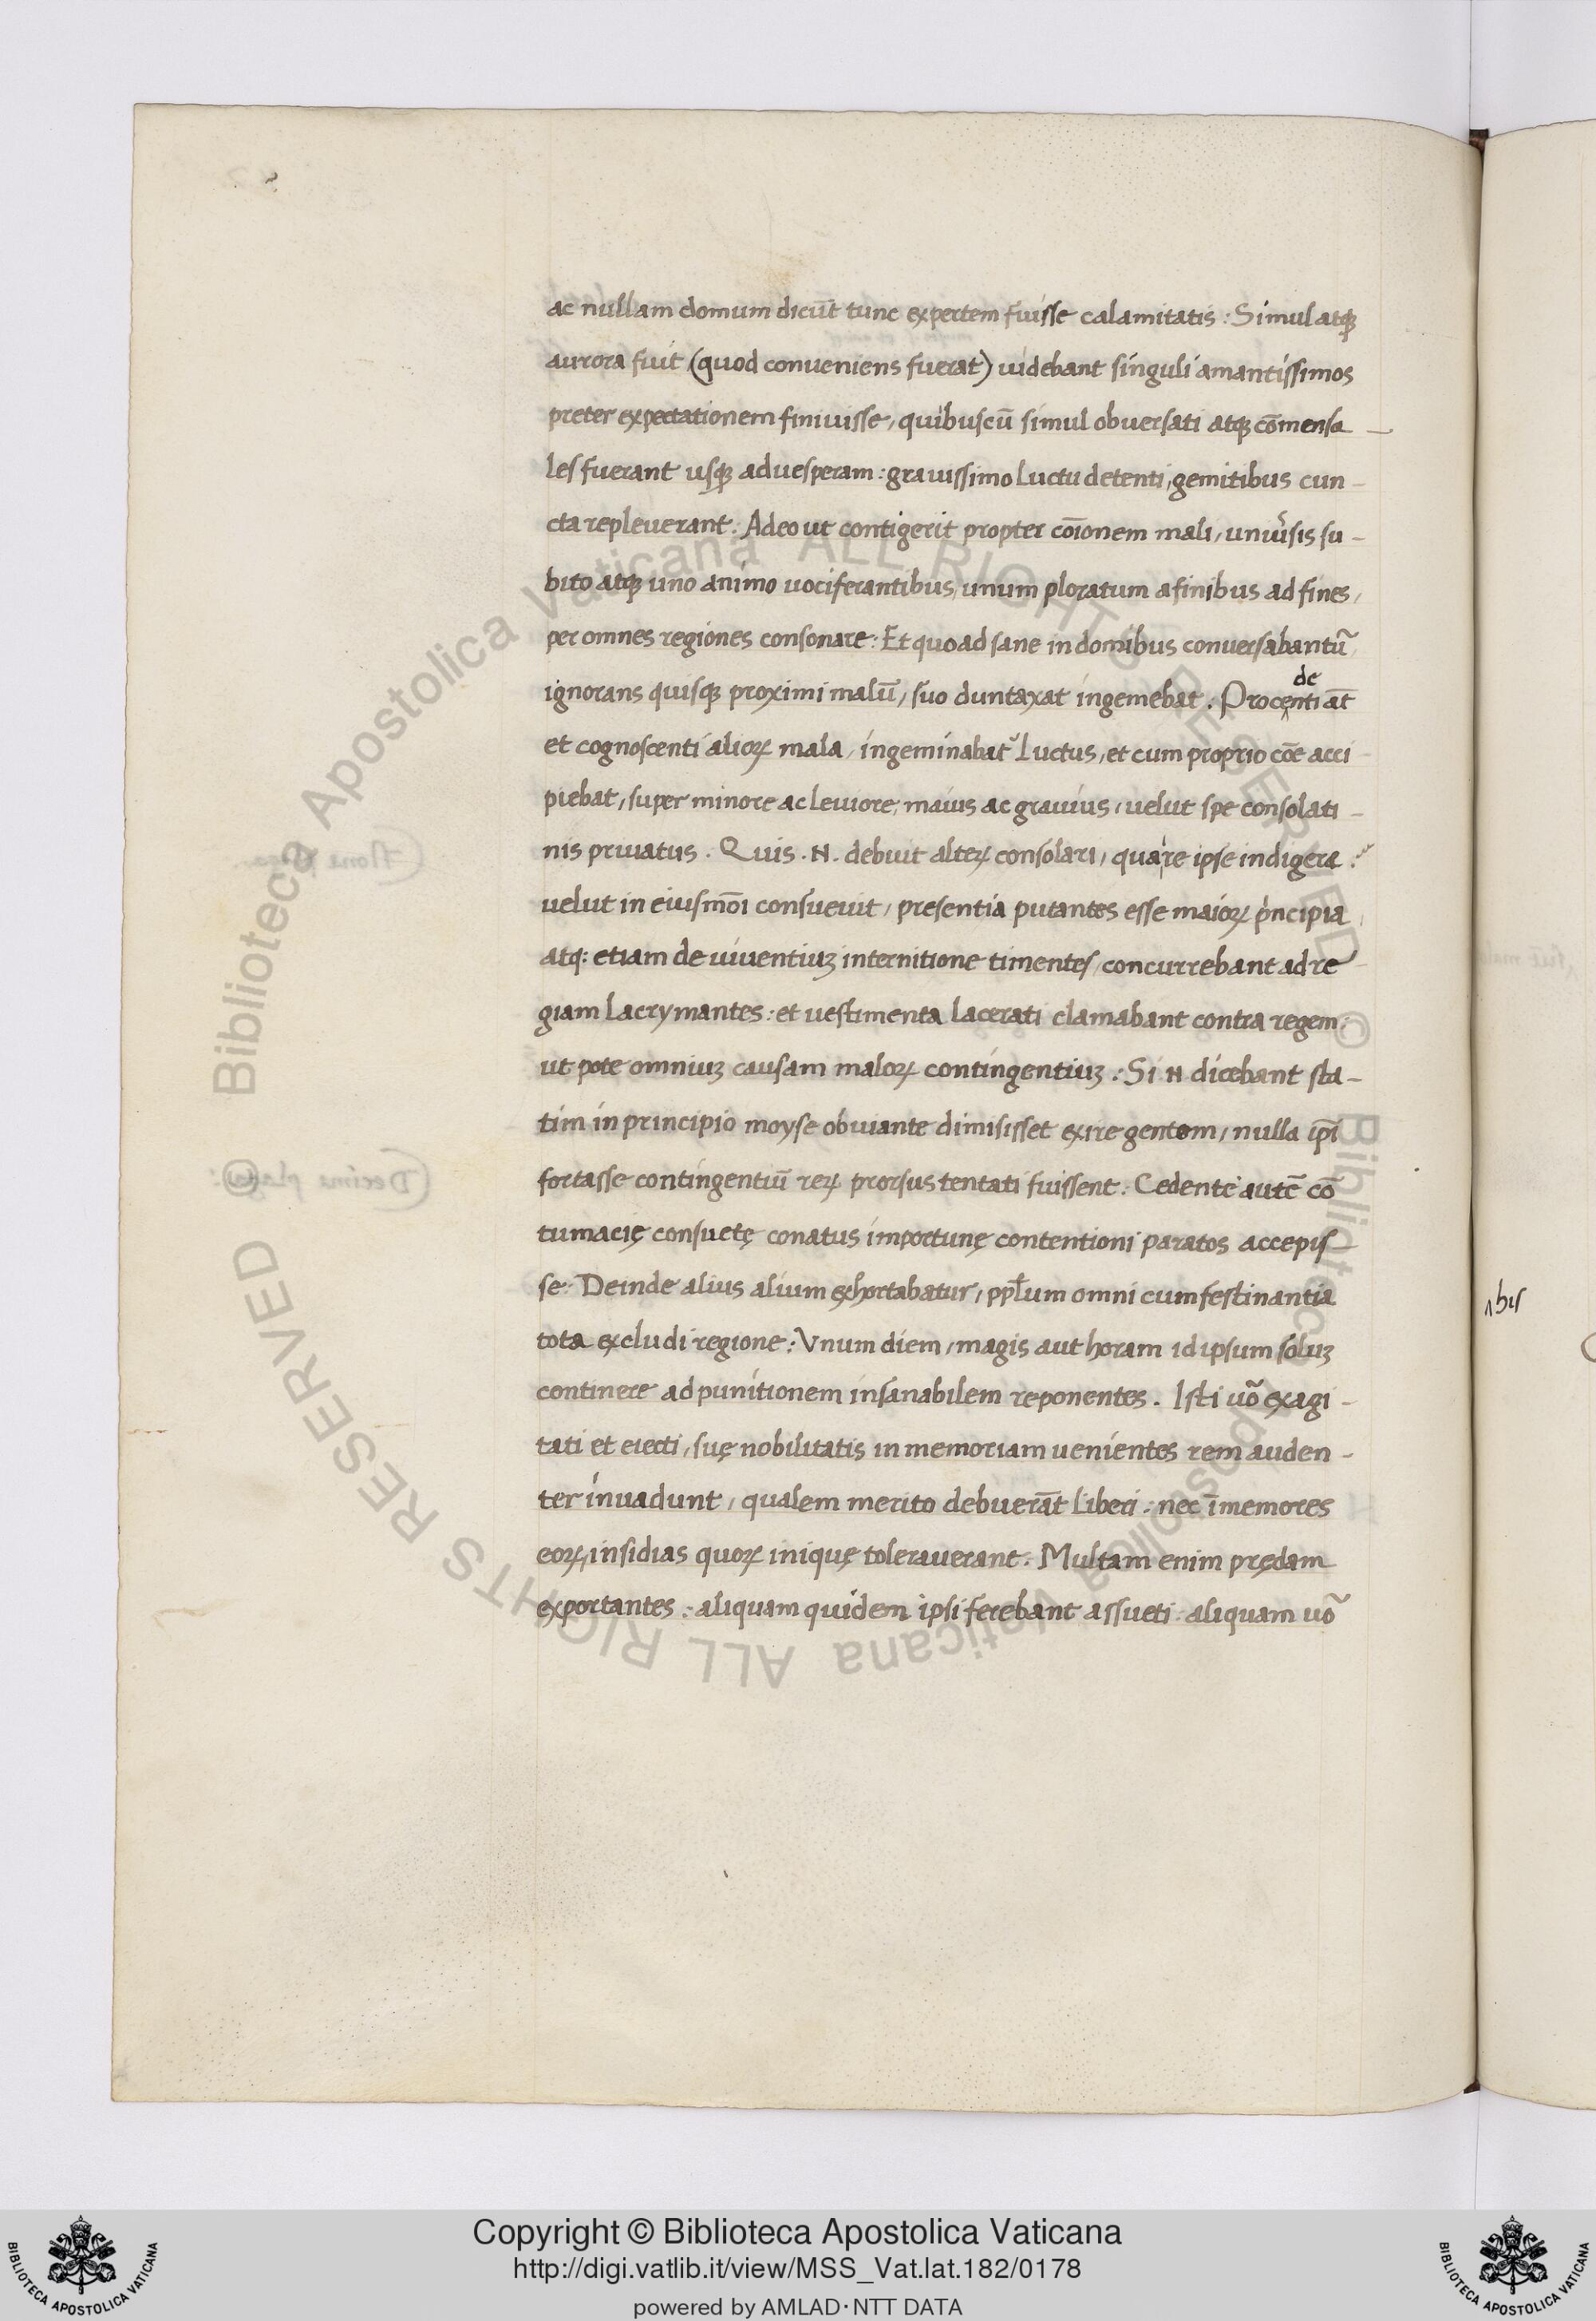 ac nullam domum dicūt tunc expertem fuisse calamitatis : Simul atqꝫ
aurora fuit (quod conueniens fuerat) uidebant singuli amantissimos
preter expectationem finiuisse, quibuscū simul obuersati atqꝫ cōmensa –
les fuerant usqꝫ ad uesperam : grauissimo luctu detenti, gemitibus cun –
cta repleuerant. Adeo ut contigerit propter cōionem mali, uniu͛sis su –
bito atqꝫ uno animo uociferantibus, unum ploratum a finibus ad fines,
per omnes regiones consonare : Et quoad sane in domibus conuersabantu᷑,
de
ignorans quisqꝫ proximi malū, suo duntaxat ingemebat. Procenti āt
et cognoscenti alioꝝ mala, ingeminabat᷑ luctus, et cum proprio cōe acci –
piebat, super minore ac leuiore, maius ac grauius, uelut spe consolati –
nis priuatus. Quis .N. debuit alteꝝ consolari, quare ipse indigere :
uelut in eiusmōi consueuit, presentia putantes esse maioꝝ pͥncipia,
atq: etiam de uiuentiuꝫ internitione timentes, concurrebant ad re –
giam lacrymantes : et uestimenta lacerati clamabant contra regem :
ut pote omniuꝫ causam maloꝝ contingentiuꝫ : Si N dicebant sta –
tim in principio moyse obuiante dimisisset exire gentem, nulla ip̄i
fortasse contingentiū reꝝ prorsus tentati fuissent : Cedente autē cō
tumacię consuetę conatus importunę contentioni paratos accepis –
se : Deinde alius alium exhortabatur, pp̄lum omni cum festinantia
tota excludi regione : Vnum diem, magis aut horam id ipsum soluꝫ
continere ad punitionem insanabilem reponentes. Isti uō exagi –
tati et eiecti, suę nobilitatis in memoriam uenientes rem auden –
ter inuadunt, qualem merito debuerāt liberi : nec īmemores
eoꝝ, insidias quoꝝ inique̜ tolerauerant. Multam enim prędam
exportantes : aliquam quidem ipsi ferebant assueti : aliquam uō
Biblioteca Apostolica Vaticana ALL RIGHTS RESERVED ©
Biblioteca Apostolica Vaticana ALL RIGHTS RESERVED ©
Copyright © Biblioteca Apostolica Vaticana
http://digi.vatlib.it/view/MSS_Vat.lat.182/0178
powered by AMLAD·NTT DATA
BIBLIOTECA APOSTOLICA VATICANA
BIBLIOTECA APOSTOLICA VATICANA